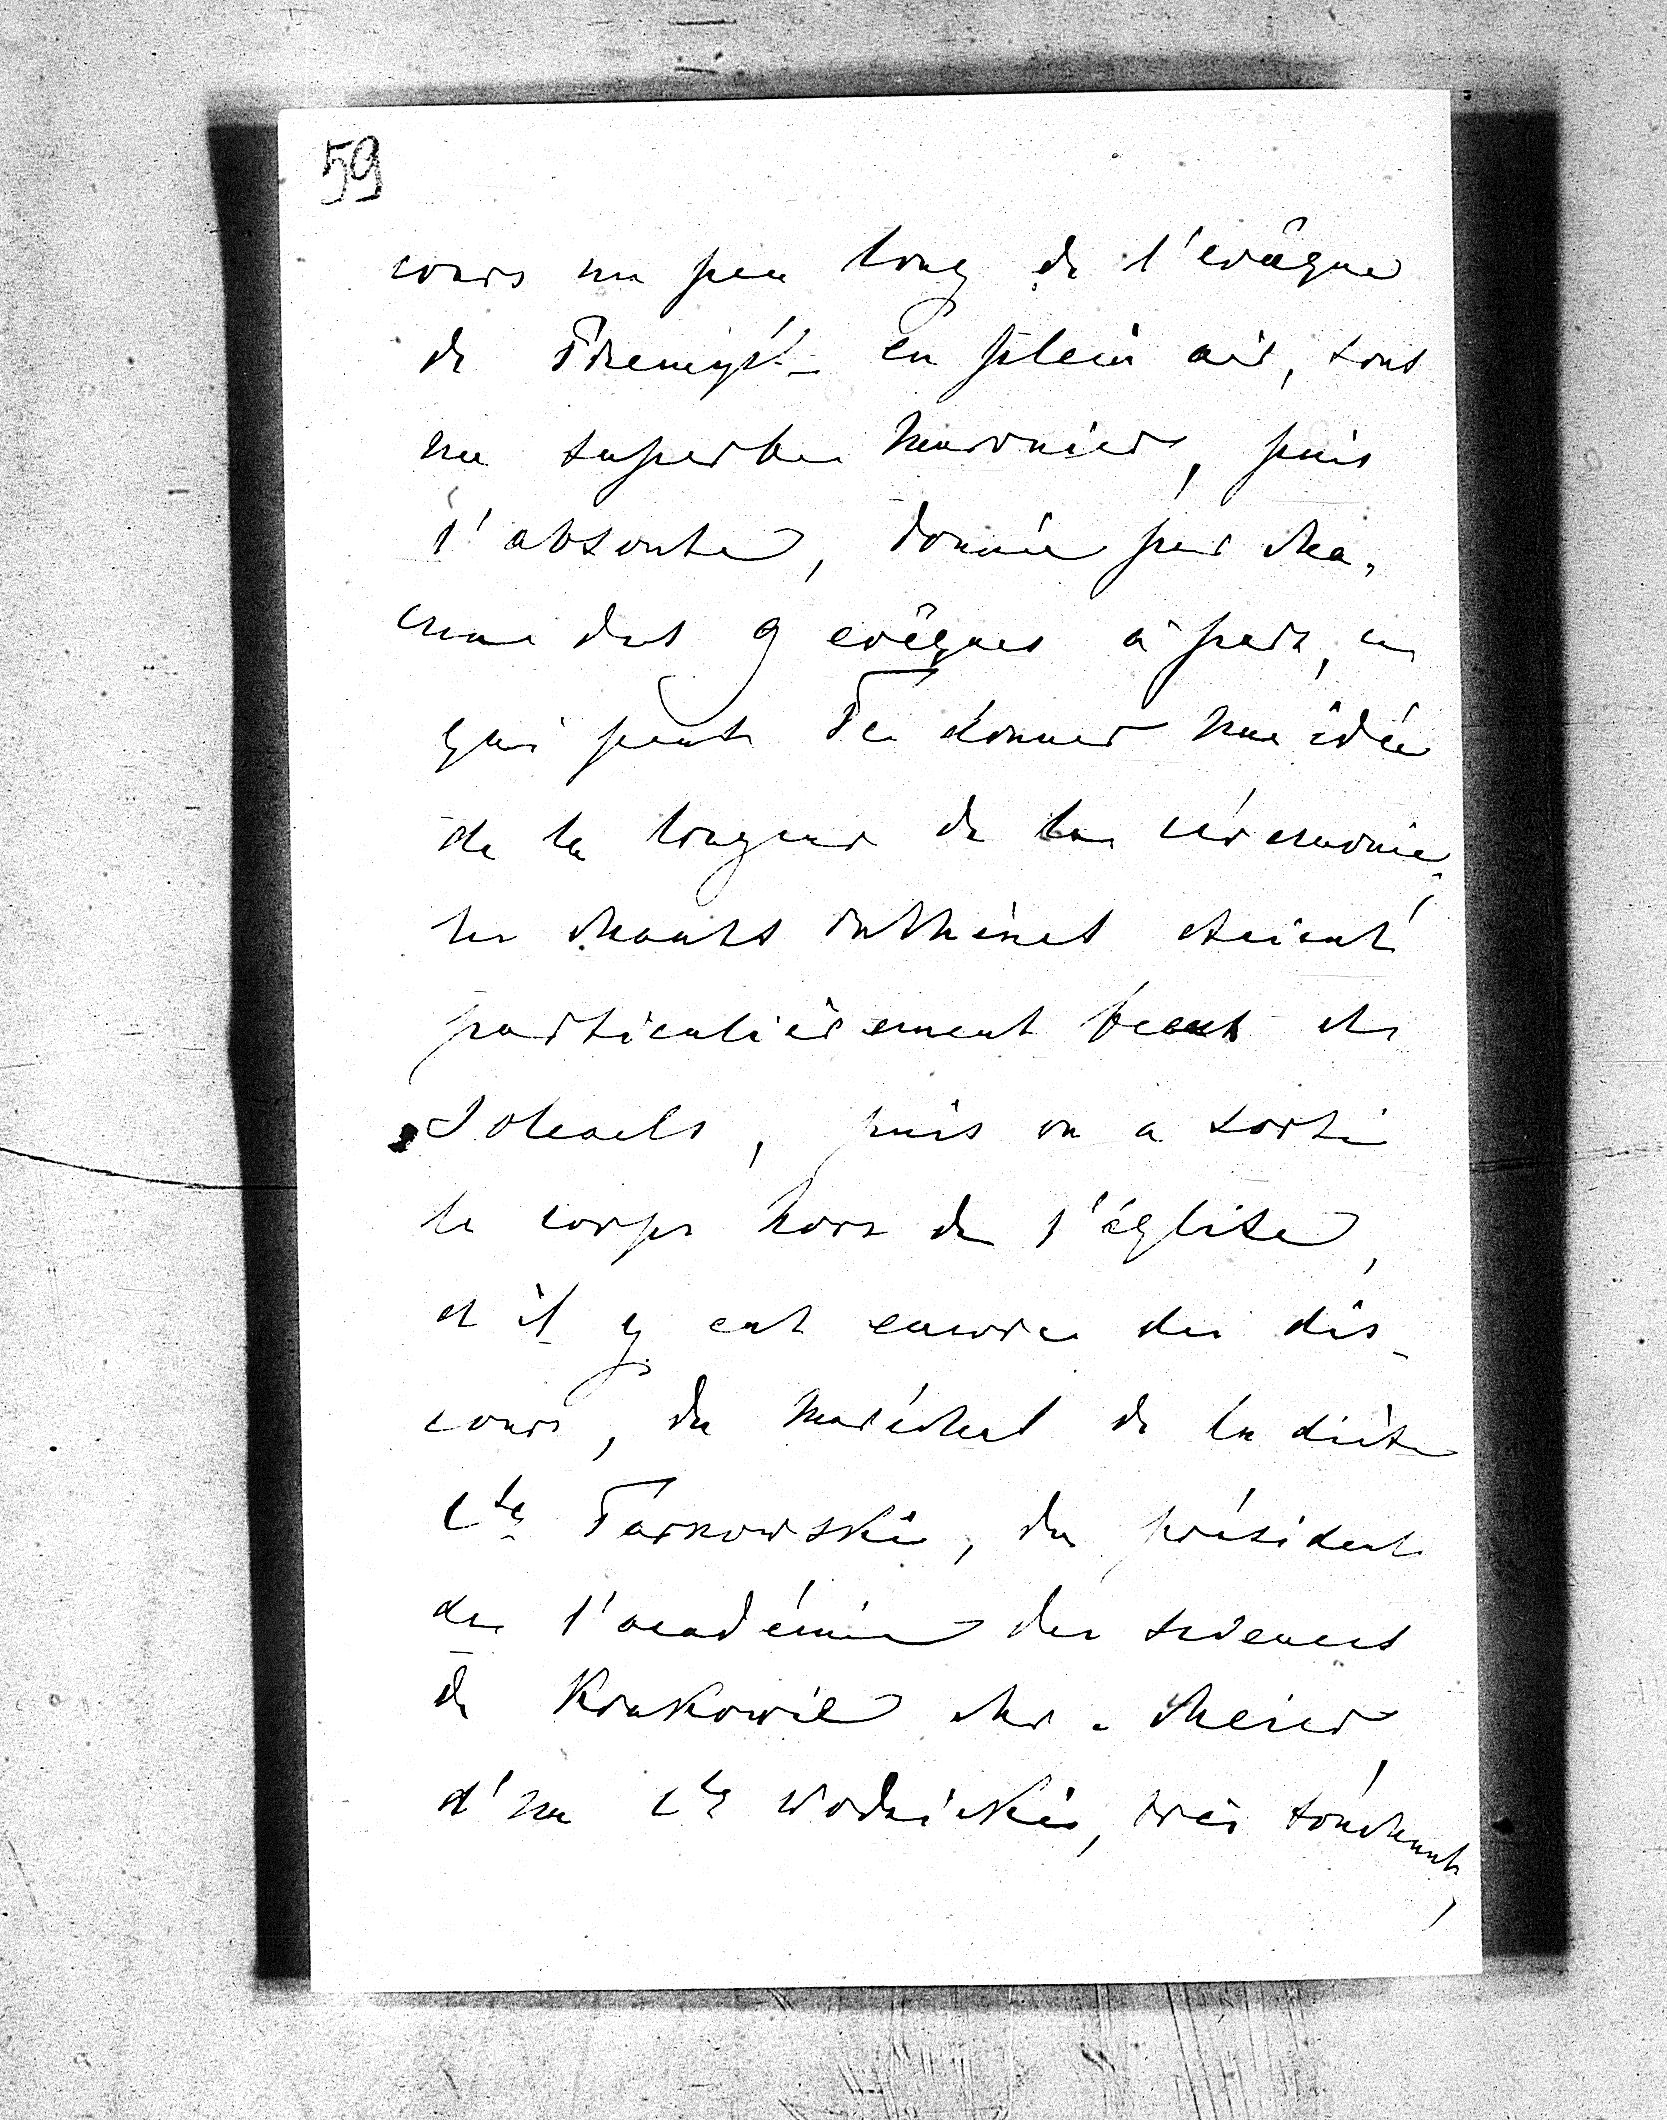 59
cours un peu long de l'evêque
de Přemysl_ en plein air, sous
un superbe maronier, puis
l'absoute, donnée par cha,
cune des 9 evêques à part, ce
qui peut Te donner une idée
de la longeur de la cérémonie,
les chants ruthènes etaient
particulièrement beaux et
, puis on a sorti
le corps hors de l'église,
et il y eut encore des dis_
cours, du maréchal de la diète
Cte Tarnowski, du président
de l'académie des sciences
de Krakovie Mr. Meier,
d'un Cte Wodzicki, très touchant,